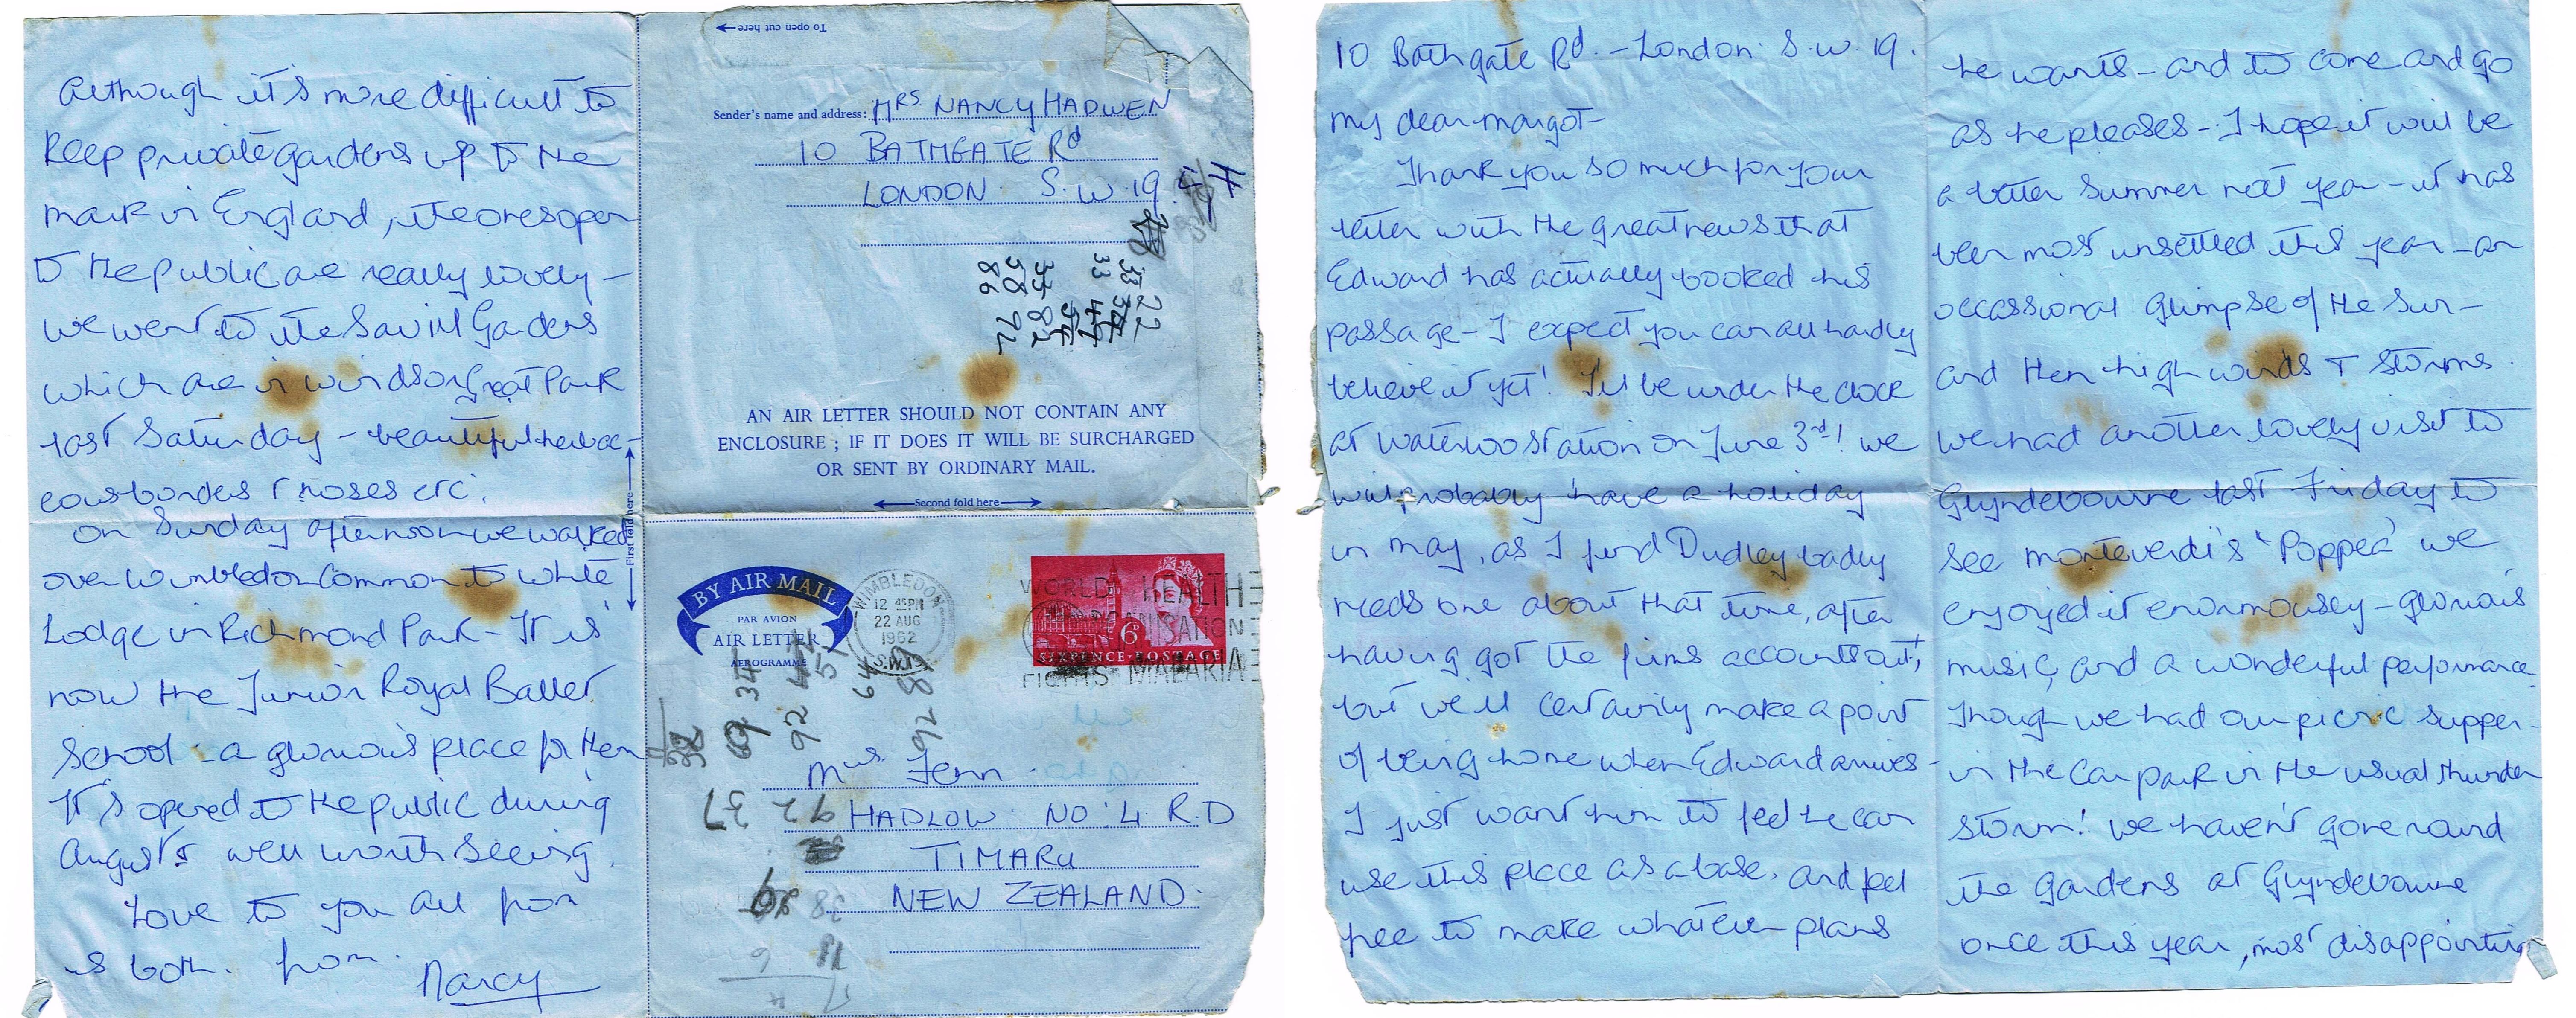 10 Bathgate Rd. - London. S.W. 19.
My dear Margot -
Thank you so much for your
letter with the great news that
Edward has actually booked his
passage - I expect you can all hardly
believe it yet! I'll be under the clock
at Waterloo Station on June 3rd! We
will probably have a holiday
in May, as I find Dudley badly
needs one about that time, after
having got the firms accounts out,
but we'll certainly make a point
of being home when Edward arrives -
I just want him to feel he can
use this place as a base, and feel
free to make whatever plans
he wants - and to come and go
as he pleases - I hope it will be
a better summer next year - it has
been most unsettled this year - an
occassional glimpse of the sun -
and then high winds & storms.
We had another lovely visit to
Glyndebourne last Friday to
see Monteverdi's "Poppea" we
enjoyed it enormously - glorious
music, and a wonderful performance
Though we had our picnic supper
in the car park in the usual thunder
storm! We haven't gone round
the gardens at Glyndebourne
once this year, most disappointing
Although it's more difficult to
keep private gardens up to the
mark in England, the ones open
to the public are really lovely -
we went to the Savill Gardens
which are in Windsor Great Park
last Saturday - beautiful herbac-
eous borders & roses etc.
On Sunday afternoon we walked
over Wimbledon Common to White
Lodge in Richmond Park - It is
now the Junior Royal Ballet
School - a glorious place for them
It's opened to the public during
August & well worth seeing.
Love to you all from
us both. from.
Nancy
To open cut here
Sender's name and address: MRS. NANCY HADWEN
10 BATHGATE Rd
LONDON. S.W.19.
AN AIR LETTER SHOULD NOT CONTAIN ANY
ENCLOSURE ; IF IT DOES IT WILL BE SURCHARGED
OR SENT BY ORDINARY MAIL.
Second fold here
First fold here
BY AIR MAIL
PAR AVION
AIR LETTER
AEROGRAMME
WIMBLEDON
12 45PM
22 AUG
1962
S.W.19
WORLD HEALTH
ORGANISATION
FIGHTS MALARIA
6D
SIXPENCE POSTAGE
Mrs Fenn.
HADLOW. NO: 4. R.D
TIMARU
NEW ZEALAND.